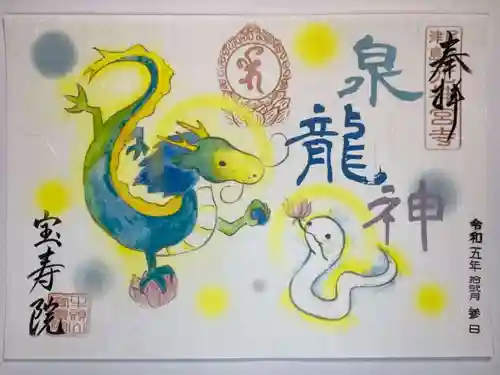 奉拝
泉龍神
令和五年 拾弐月 参日
宝寿院